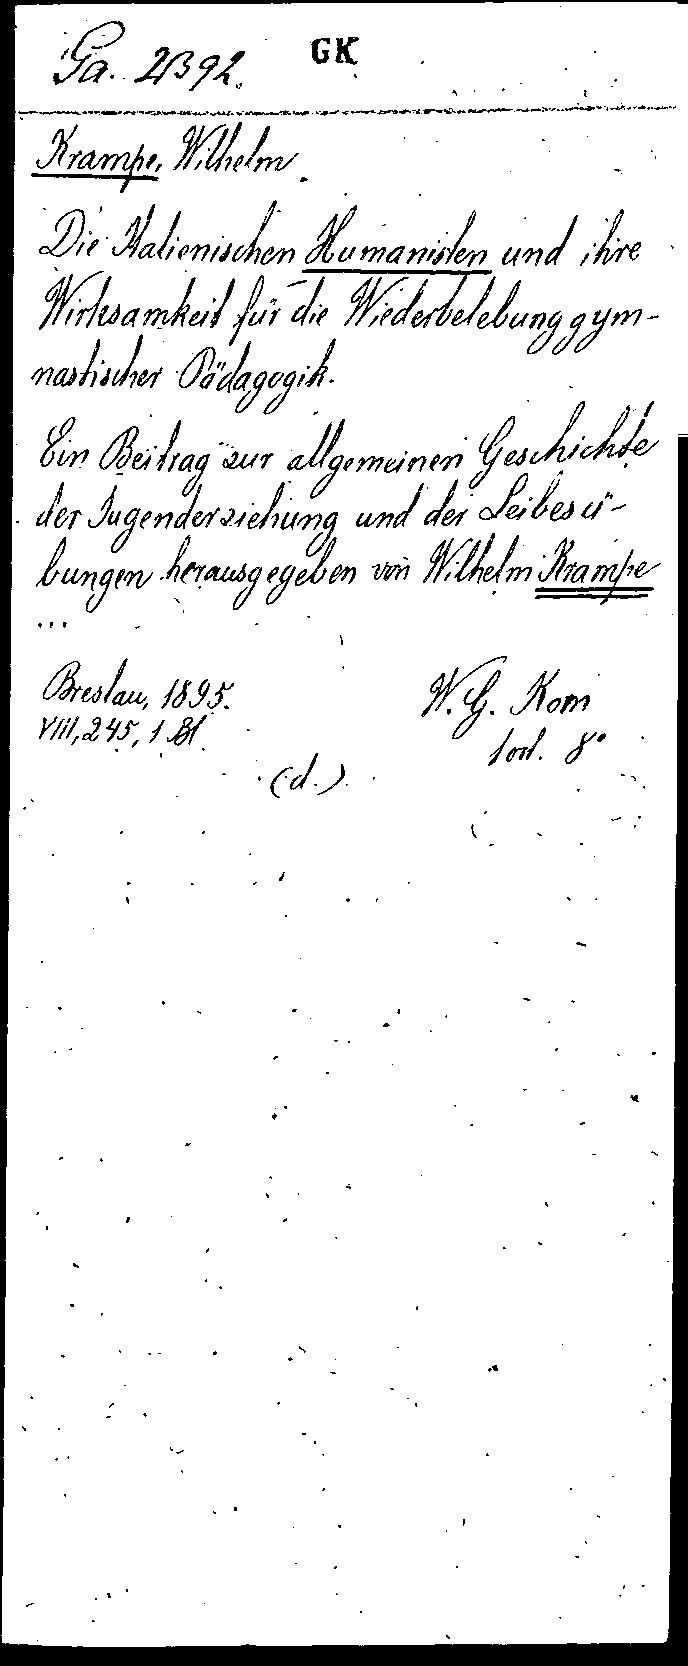 Ga. 2392. GK
Krampe, Wilhelm.
Die Italienischen Humanisten und ihre
Wirksamkeit für die Wiederbelebung gym-
nastischer Pädagogik.
Ein Beitrag zur allgemeinen Geschichte
der Jugenderziehung und der Leibesü-
bungen herausgegeben von Wilhelm Krampe
...
Breslau, 1895. W. G. Korn
VIII, 245, 1 Bl. 8°
(d.)